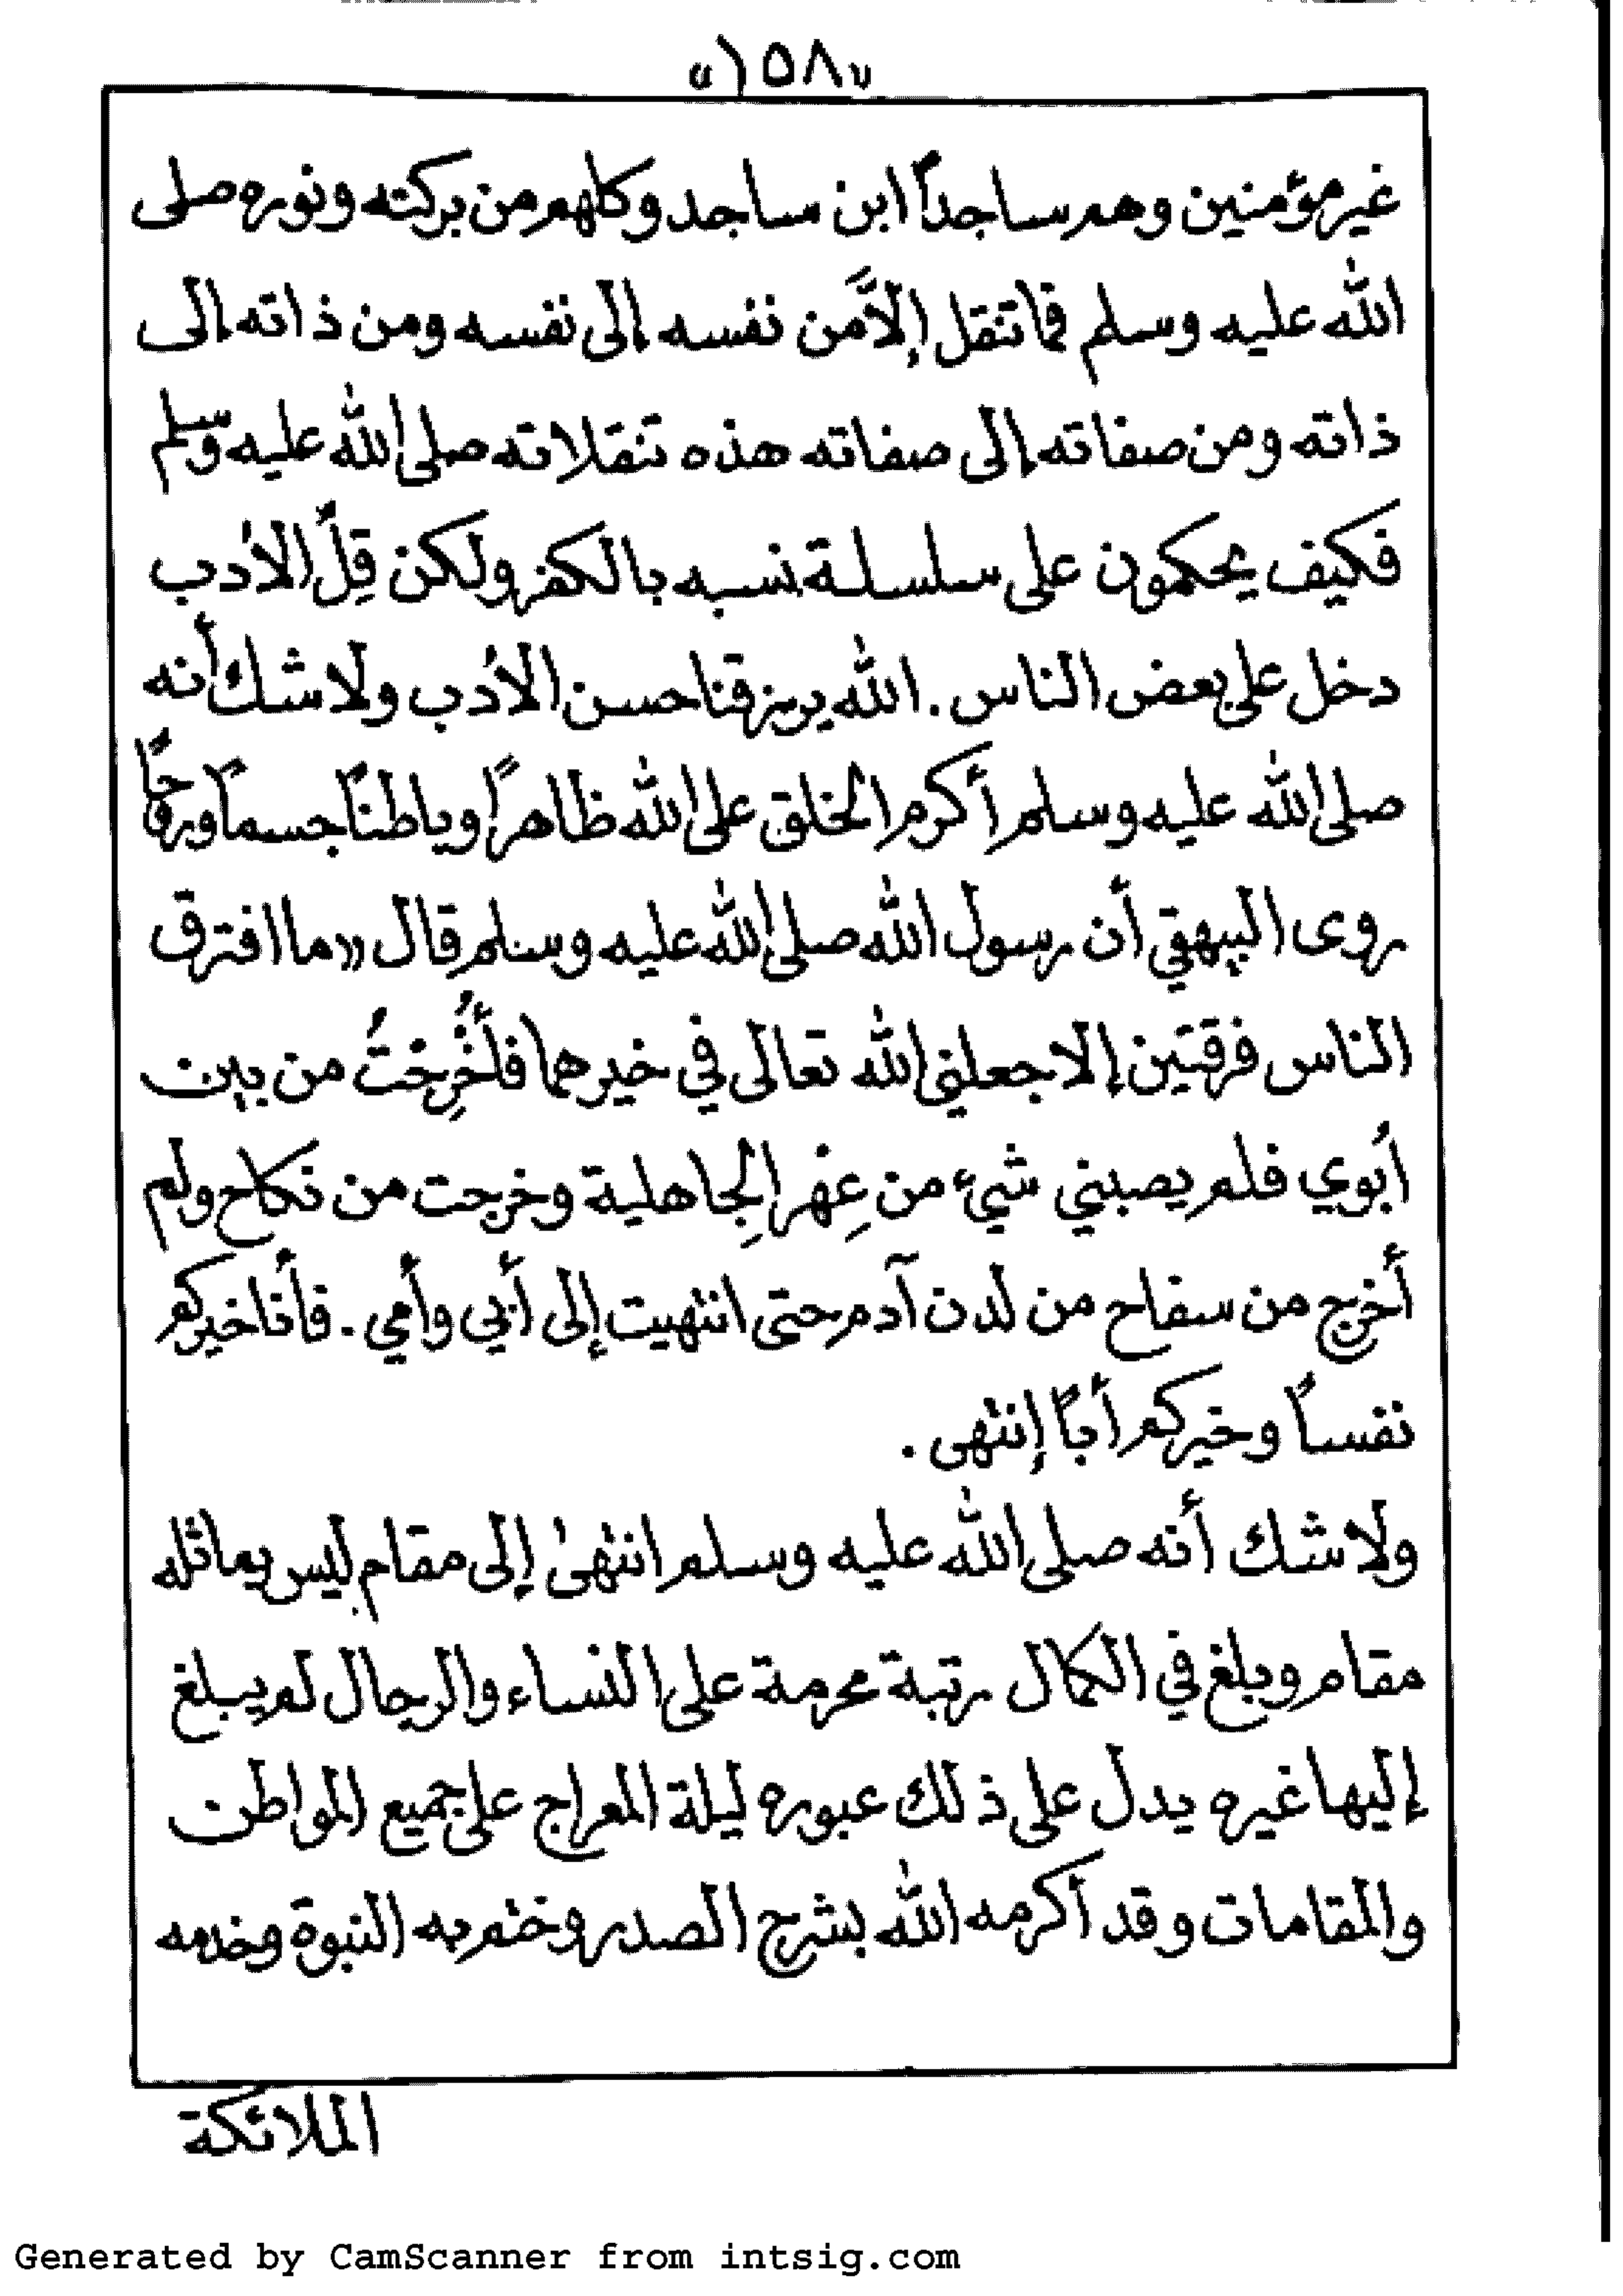 «١٥٨»
غير مؤمنين وهم ساجداً ابن ساجد وكلهم من بركته ونوره صلى
الله عليه وسلم فما تنقل إلاَّ من نفسه إلى نفسه ومن ذاته إلى
ذاته ومن صفاته إلى صفاته هذه تنقلاته صلى الله عليه وسلم
فكيف يحكمون على سلسلة نسبه بالكفر ولكن قِلّ الأدب
دخل على بعض الناس . الله يرزقنا حسن الأدب ولا شك أنه
صلى الله عليه وسلم أكرم الخلق على الله ظاهراً وباطناً جسماً وروحاً
روى البيهقي أن رسول الله صلى الله عليه وسلم قال «ما افترق
الناس فرقتين إلا جعلني الله تعالى في خيرهما فأُخْرِجْتُ من بين
أبوي فلم يصبني شيء من عِهْر الجِاهلية وخرجت من نكاح ولم
أخرج من سفاح من لدن آدم حتى انتهيت إلى أبي وأمي . فأنا خيركم
نفساً وخيركم أباً إنتهى .
ولا شك أنه صلى الله عليه وسلم انتهىٰ إلى مقام ليس يماثله
مقام وبلغ في الكمال رتبة محرمة على النساء والرجال لم يبلغ
إليها غيره يدل على ذلك عبوره ليلة المعراج على جميع المواطن
والمقامات وقد أكرمه الله بشرح الصدر وختم به النبوة وخدمه
الملائكة
Generated by CamScanner from intsig.com